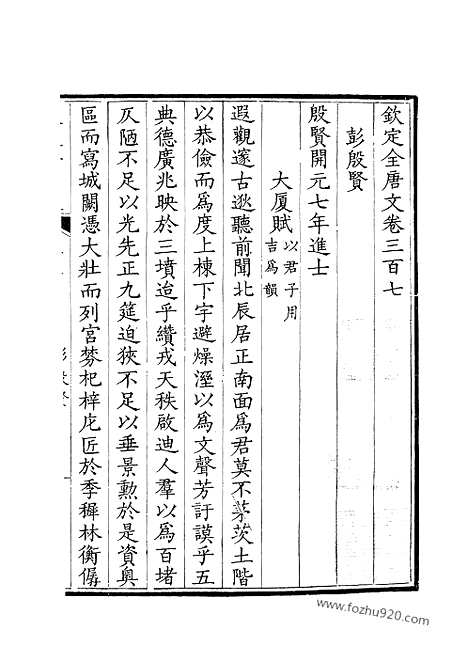 欽定全唐文卷三百七
彭殷賢
殷賢開元七年進士
大厦賦以君子用吉爲韻
遐觀邃古逖聽前聞北辰居正南面爲君莫不茅茨土階
以恭儉而爲度上棟下宇避燥溼以爲文聲芳訏謨乎五
典德廣兆映於三墳迨乎纘戎天秩啟迪人羣以爲百堵
仄陋不足以光先正九筵迫狹不足以垂景勲於是資輿
區而寫城闕憑大壯而列宮棼杞梓庀匠於季穉林衡僝
www.fozhu920.com